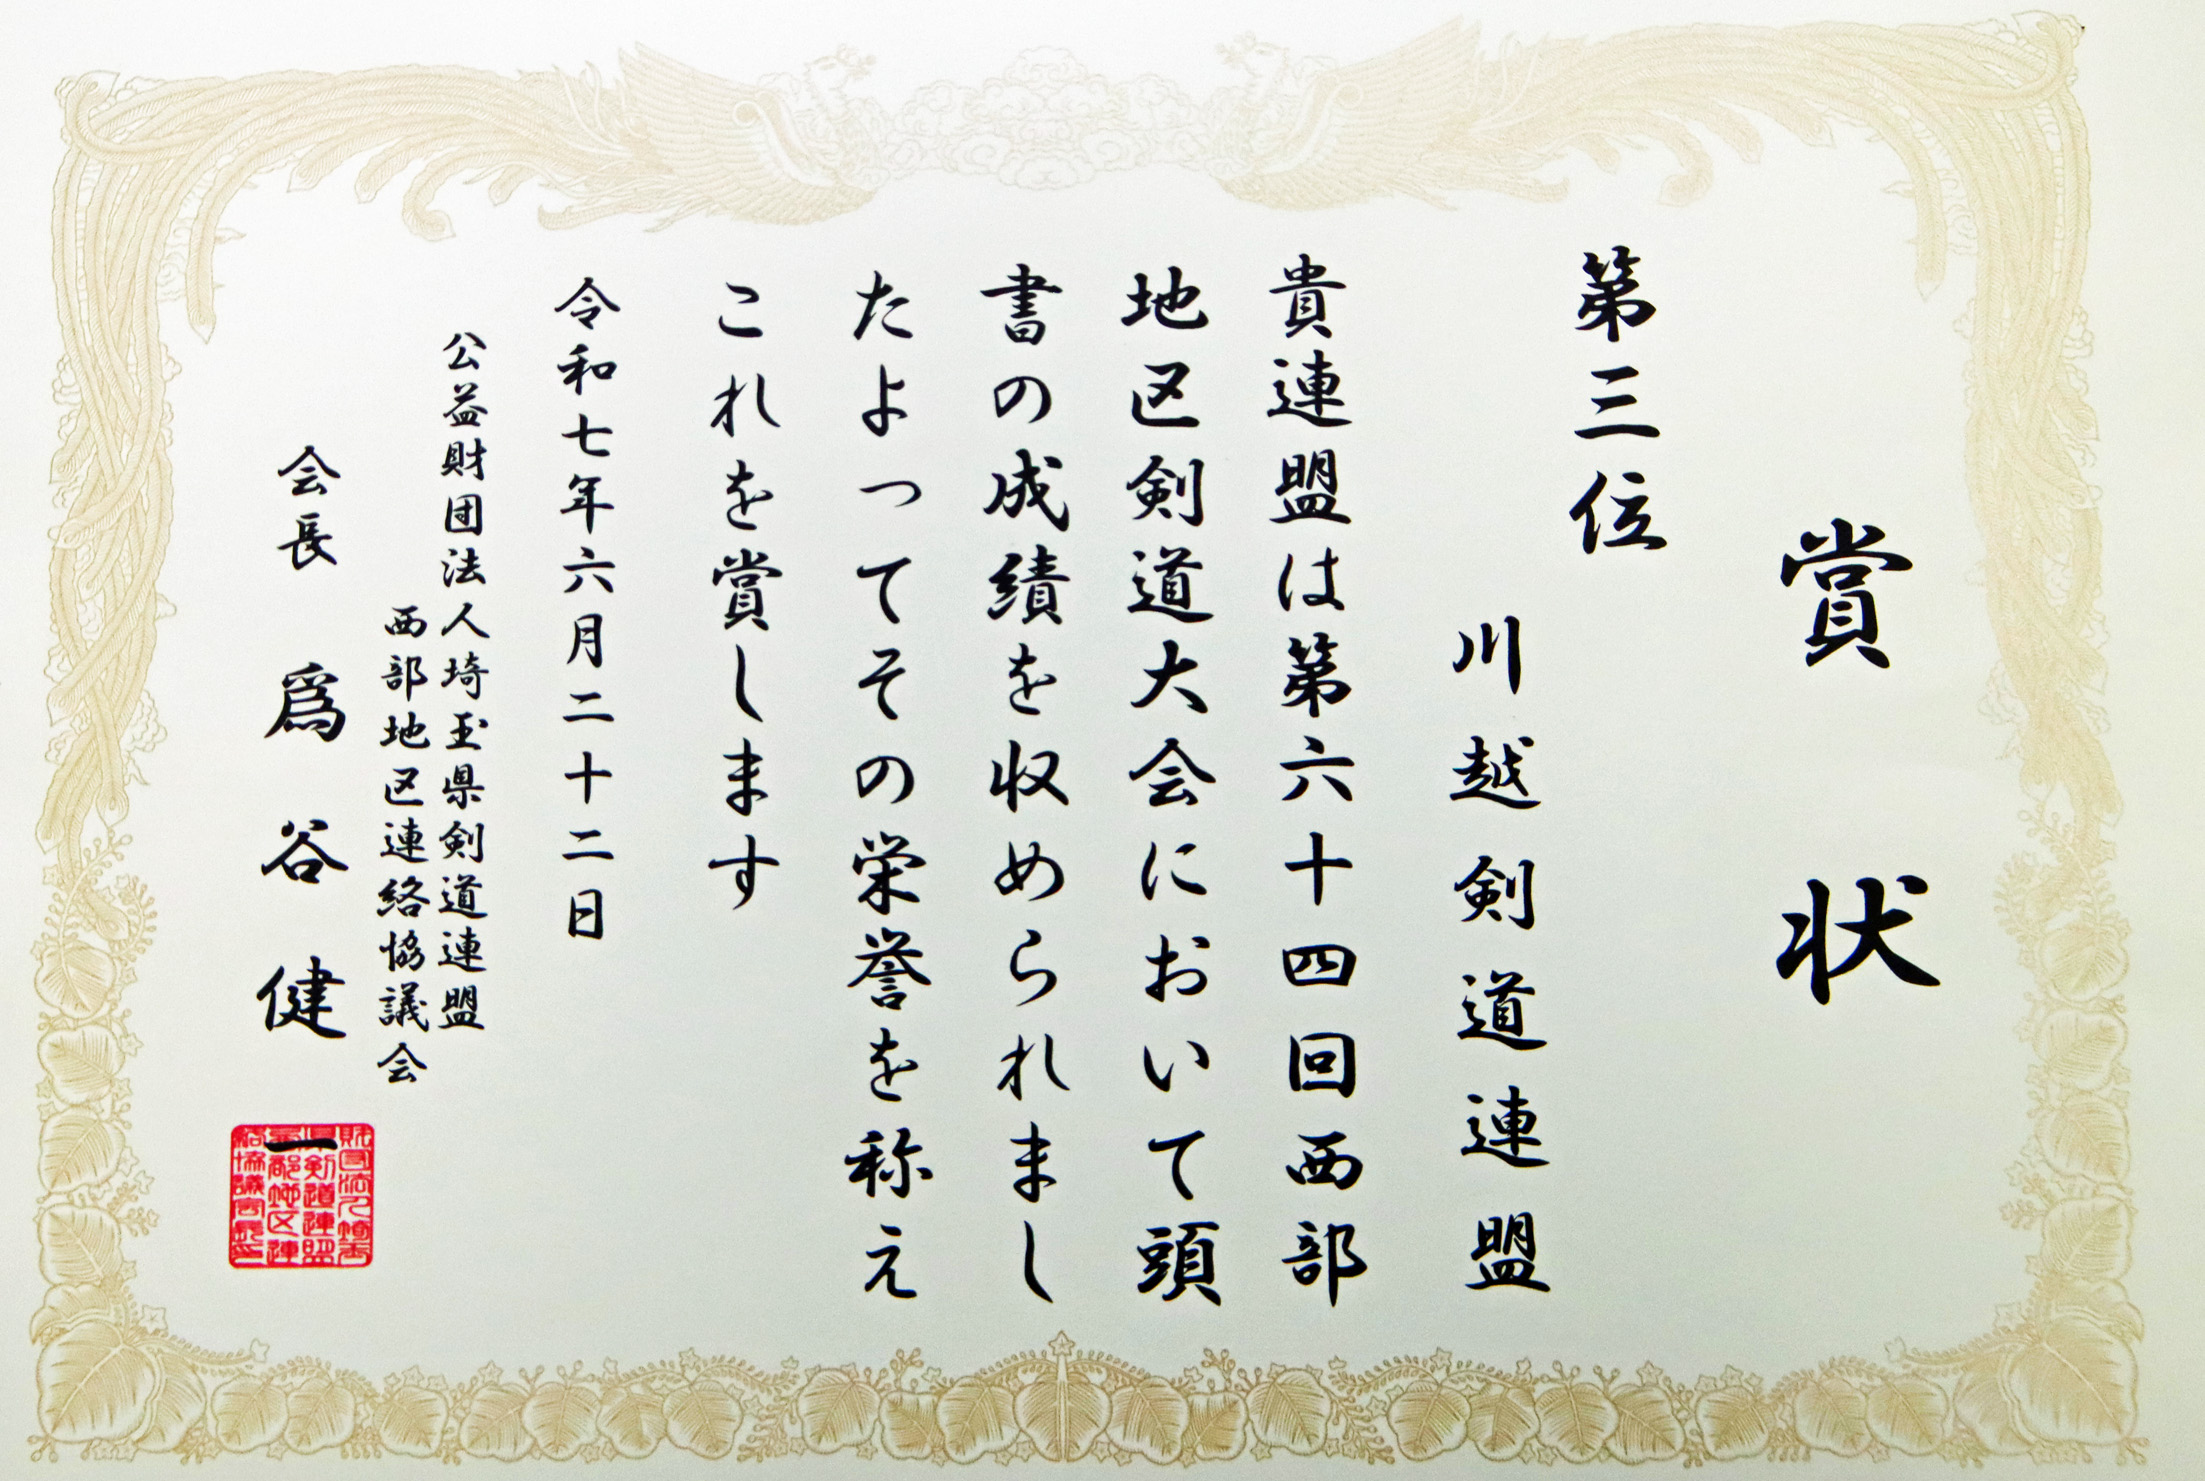 賞状
第三位
川越剣道連盟
貴連盟は第六十四回西部
地区剣道大会において頭
書の成績を収められまし
たよってその栄誉を称え
これを賞します
令和七年六月二十二日
公益財団法人埼玉県剣道連盟
西部地区連絡協議会
会長 爲谷健一